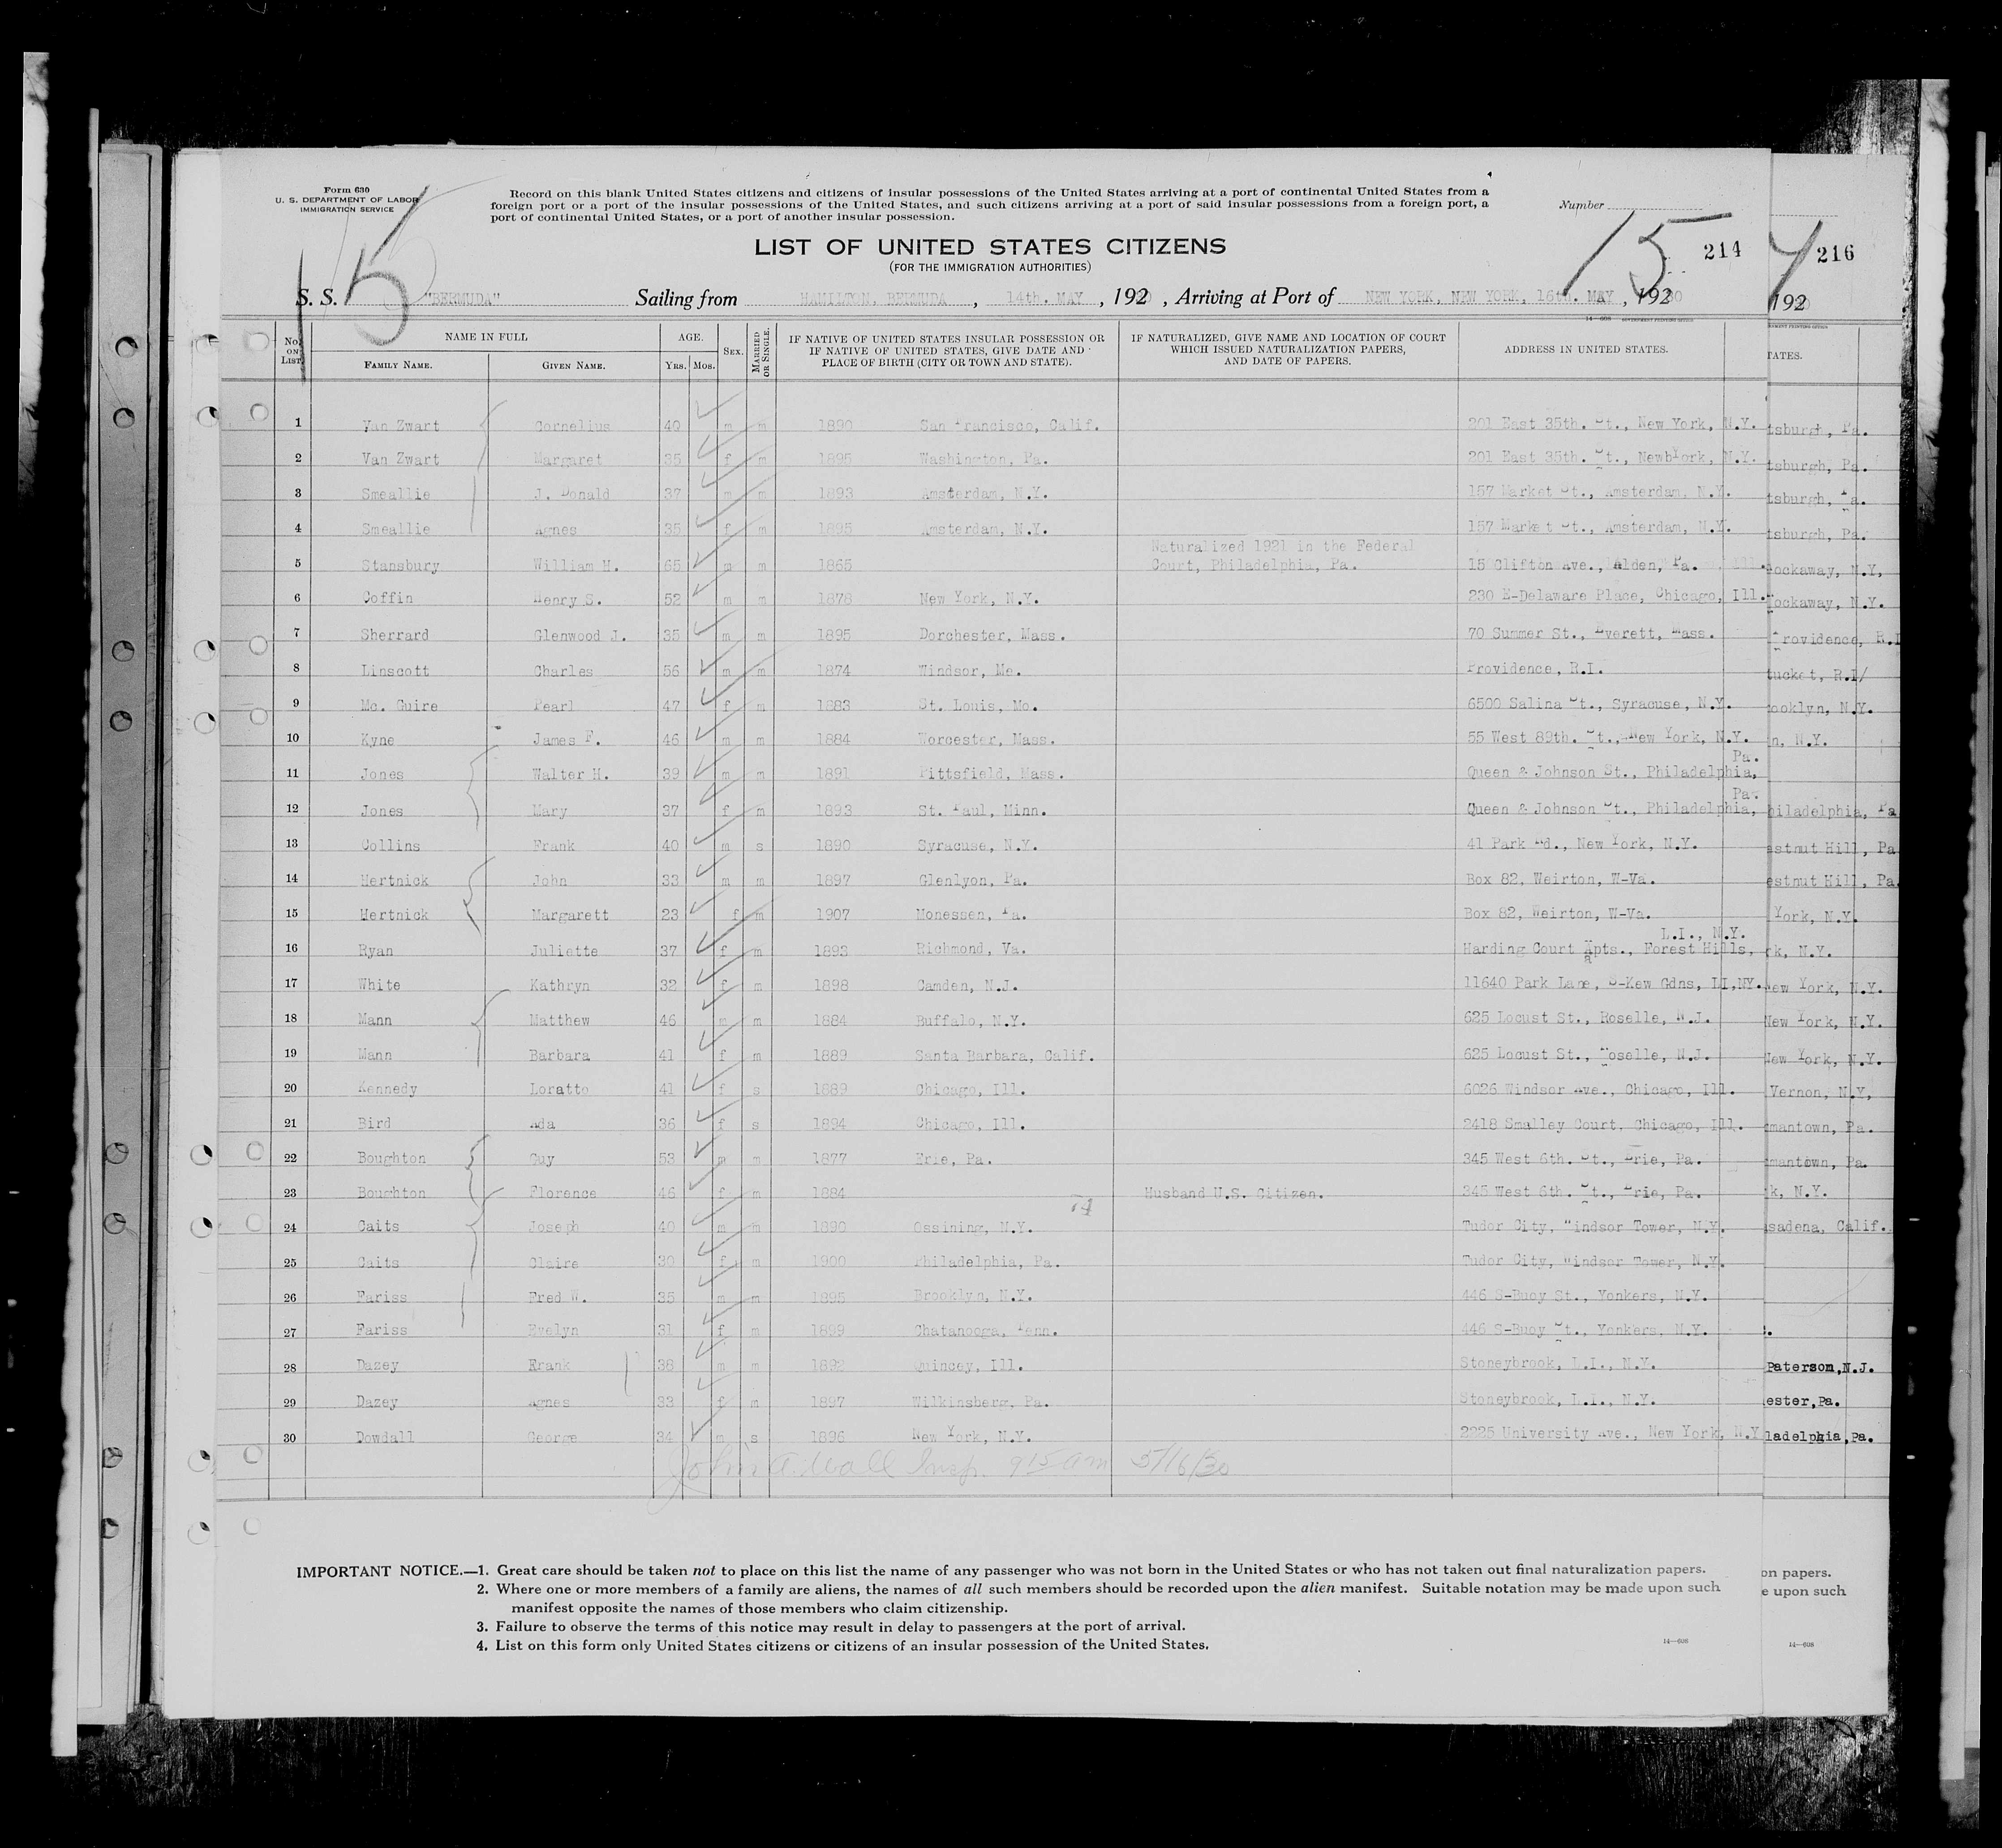 Form 630
U. S. DEPARTMENT OF LABOR
IMMIGRATION SERVICE
Record on this blank United States citizens and citizens of insular possessions of the United States arriving at a port of continental United States from a
foreign port or a port of the insular possessions of the United States, and such citizens arriving at a port of said insular possessions from a foreign port, a
port of continental United States, or a port of another insular possession.
Number
15 15 214 216
LIST OF UNITED STATES CITIZENS
(FOR THE IMMIGRATION AUTHORITIES)
S. S. "BERMUDA" Sailing from HAMILTON, BERMUDA, 14th. MAY, 19230, Arriving at Port of NEW YORK, NEW YORK, 16th. MAY, 19230 192
14—608 GOVERNMENT PRINTING OFFICE
No. ON LIST NAME IN FULL FAMILY NAME. GIVEN NAME. AGE. YRS. MOS. SEX. MARRIED OR SINGLE. IF NATIVE OF UNITED STATES INSULAR POSSESSION OR IF NATIVE OF UNITED STATES, GIVE DATE AND PLACE OF BIRTH (CITY OR TOWN AND STATE). IF NATURALIZED, GIVE NAME AND LOCATION OF COURT WHICH ISSUED NATURALIZATION PAPERS, AND DATE OF PAPERS. ADDRESS IN UNITED STATES. TATES.
1 Van Zwart Cornelius 40 m m 1890 San Francisco, Calif. 201 East 35th. St., New York, N.Y. tsburgh, Pa.
2 Van Zwart Margaret 35 f m 1895 Washington, Pa. 201 East 35th. St., NewbYork, N.Y. tsburgh, Pa.
3 Smeallie J. Donald 37 m m 1893 Amsterdam, N.Y. 157 Market St., Amsterdam, N.Y. tsburgh, Pa.
4 Smeallie Agnes 35 f m 1895 Amsterdam, N.Y. 157 Market St., Amsterdam, N.Y. tsburgh, Pa.
Naturalized 1921 in the Federal
5 Stansbury William H. 65 m m 1865 Court, Philadelphia, Pa. 15 Clifton Ave., Alden, Pa. ockaway, N.Y,
6 Coffin Henry S. 52 m m 1878 New York, N.Y. 230 E-Delaware Place, Chicago, Ill. ockaway, N.Y.
7 Sherrard Glenwood J. 35 m m 1895 Dorchester, Mass. 70 Summer St., Everett, Mass. Providence, R.I
8 Linscott Charles 56 m m 1874 Windsor, Me. Providence, R.I. tucket, R.I/
9 Mc. Guire Pearl 47 f m 1883 St. Louis, Mo. 6500 Salina St., Syracuse, N.Y. ooklyn, N.Y.
10 Kyne James F. 46 m m 1884 Worcester, Mass. 55 West 89th. St., New York, N.Y. n, N.Y.
Pa.
11 Jones Walter H. 39 m m 1891 Pittsfield, Mass. Queen & Johnson St., Philadelphia,
Pa.
12 Jones Mary 37 f m 1893 St. Paul, Minn. Queen & Johnson St., Philadelphia, hiladelphia, Pa
13 Collins Frank 40 m s 1890 Syracuse, N.Y. 41 Park Rd., New York, N.Y. estnut Hill, Pa
14 Hertnick John 33 m m 1897 Glenlyon, Pa. Box 82, Weirton, W-Va. estnut Hill, Pa.
15 Hertnick Margarett 23 f m 1907 Monessen, Pa. Box 82, Weirton, W-Va. York, N.Y.
L.I., N.Y.
16 Ryan Juliette 37 f m 1893 Richmond, Va. Harding Court Apts., Forest Hills, rk, N.Y.
17 White Kathryn 32 f m 1898 Camden, N.J. 11640 Park Lane, S-Kew Gdns, LI,NY. New York, N.Y.
18 Mann Matthew 46 m m 1884 Buffalo, N.Y. 625 Locust St., Roselle, N.J. New York, N.Y.
19 Mann Barbara 41 f m 1889 Santa Barbara, Calif. 625 Locust St., Roselle, N.J. New York, N.Y.
20 Kennedy Loratto 41 f s 1889 Chicago, Ill. 6026 Windsor Ave., Chicago, Ill. Vernon, N.Y,
21 Bird Ada 36 f s 1894 Chicago, Ill. 2418 Smalley Court, Chicago, Ill. mantown, Pa.
22 Boughton Guy 53 m m 1877 Erie, Pa. 345 West 6th. St., Erie, Pa. mantown, Pa.
23 Boughton Florence 46 f m 1884 Husband U.S. Citizen. 345 West 6th. St., Erie, Pa. k, N.Y.
24 Caits Joseph 40 m m 1890 Ossining, N.Y. Tudor City, Windsor Tower, N.Y. sadena, Calif.
25 Caits Claire 30 f m 1900 Philadelphia, Pa. Tudor City, Windsor Tower, N.Y.
26 Fariss Fred W. 35 m m 1895 Brooklyn, N.Y. 446 S-Buoy St., Yonkers, N.Y.
27 Fariss Evelyn 31 f m 1899 Chatanooga, Tenn. 446 S-Buoy St., Yonkers, N.Y.
28 Dazey Frank 38 m m 1892 Quincey, Ill. Stoneybrook, L.I., N.Y. Paterson,N.J.
29 Dazey Agnes 33 f m 1897 Wilkinsberg, Pa. Stoneybrook, L.I., N.Y. ester,Pa.
30 Dowdall George 34 m s 1896 New York, N.Y. 2225 University Ave., New York, N.Y ladelphia,Pa.
John A. Wall Insp. 915 am 5/16/30
IMPORTANT NOTICE.—1. Great care should be taken not to place on this list the name of any passenger who was not born in the United States or who has not taken out final naturalization papers. on papers.
2. Where one or more members of a family are aliens, the names of all such members should be recorded upon the alien manifest. Suitable notation may be made upon such e upon such
manifest opposite the names of those members who claim citizenship.
3. Failure to observe the terms of this notice may result in delay to passengers at the port of arrival.
4. List on this form only United States citizens or citizens of an insular possession of the United States.
14—608 14—608